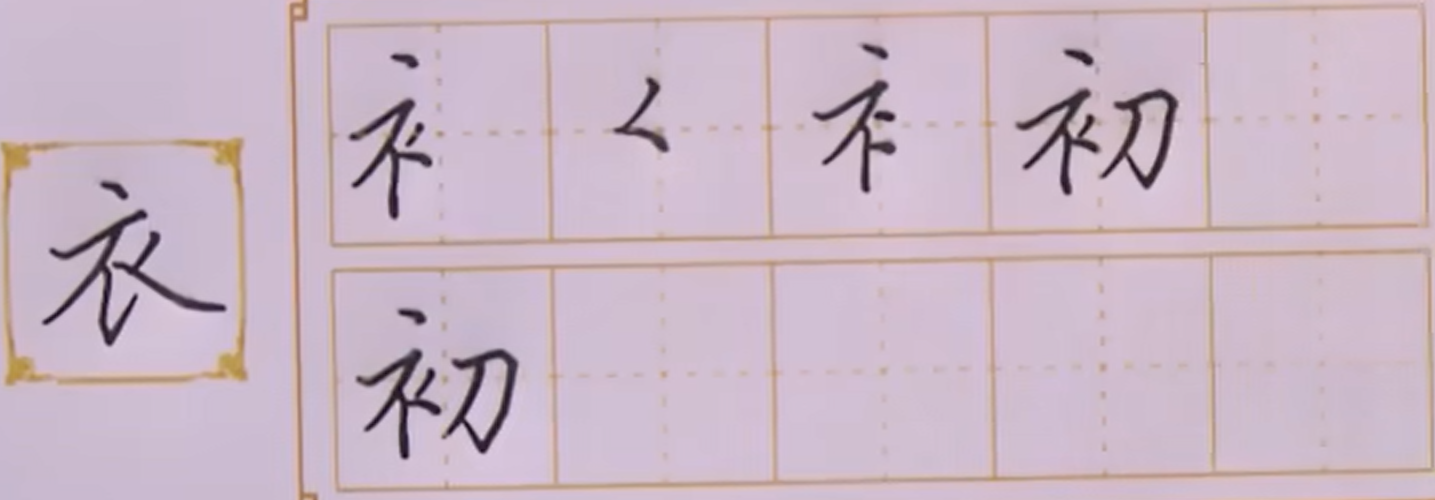 衣
衤 く 衤 初
初